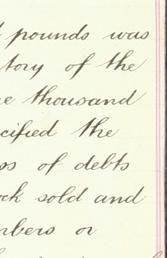 pounds was
tory of the
thousand
cified the
ss of debts
ock sold and
mbers or